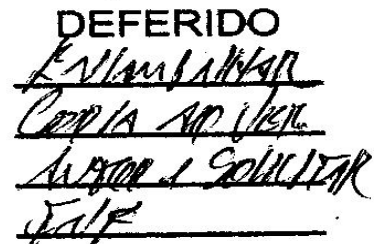 DEFERIDO
ENCAMINHAR
COPIA AO VER.
AUTOR E SOLICITAR